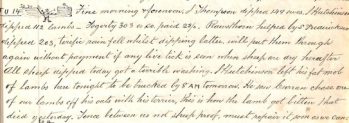 TU 14 Fine morning & forenoon. J Thompson dipped 140 ewes. J Hutchinson
dipped 112 lambs. Fogerty 303 & we paid 23/-. Hawthorn helped by S
dipped 203, terific rain fell whilst dipping latter will put them through
again without payment if any live tick is seen when sheep are dry hereafter
All sheep dipped today got a terrible washing. J Hutchinson left his fat mob
of lambs here tonight to be trucked by 8 AM tomorrow. He saw Kernan chase one
of our lambs off his oats with his terrier, this is how the lamb got bitten that
died yesterday. Fence between us not sheep proof, must repair it soon as we can